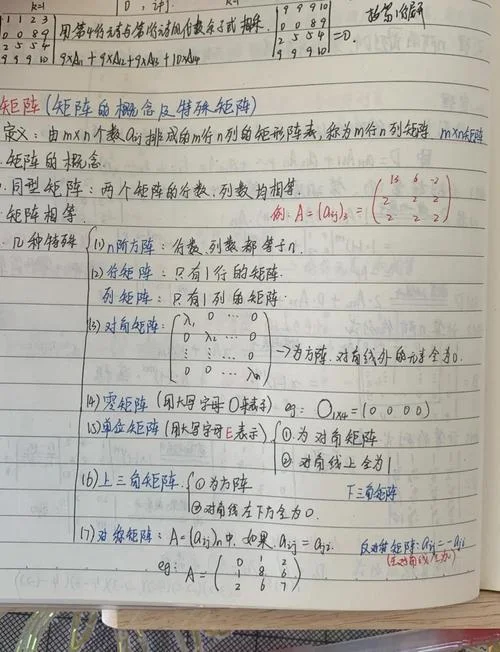 k=1
1 1 2 3
0 0 8 9
2 5 5 4
9 9 9 10
用第4行元素与第1行的代数余子式相乘.
9×A11 + 9×A12 + 9×A13 + 10×A14
9 9 9 10
0 0 8 9
2 5 5 4
9 9 9 10
=0.
矩阵 (矩阵的概念及特殊矩阵)
定义: 由m×n个数aij排成的m行n列的矩形阵表, 称为m行n列矩阵 m×n矩阵
矩阵的概念.
同型矩阵: 两个矩阵的行数、列数均相等.
矩阵相等.
例: A=(aij)3 = ( 13 6 -2
2 2 2
2 2 2 )
几种特殊
(1) n阶方阵: 行数、列数都等于n.
(2) 行矩阵: 只有1行的矩阵.
列矩阵: 只有1列的矩阵.
(3) 对角矩阵: ( λ1 0 ⋯ 0
0 λ2 ⋯ 0
⋮ ⋮ ⋮ 0
0 0 ⋯ λn )
→为方阵. 对角线外的元素全为0.
(4) 零矩阵 (用大写字母O来表示) eg: O1×4 = (0 0 0 0)
(5) 单位矩阵 (用大写字母E表示) ①为对角矩阵
② 对角线上全为1
(6) 上三角矩阵. ①为方阵 下三角矩阵
②对角线左下方全为0.
(7) 对称矩阵: A=(aij)n中, 如果 aij = aji. 反对称矩阵: aij = -aji
(主对角线全为0)
eg: A = ( 0 1 2
1 8 6
2 6 7 )